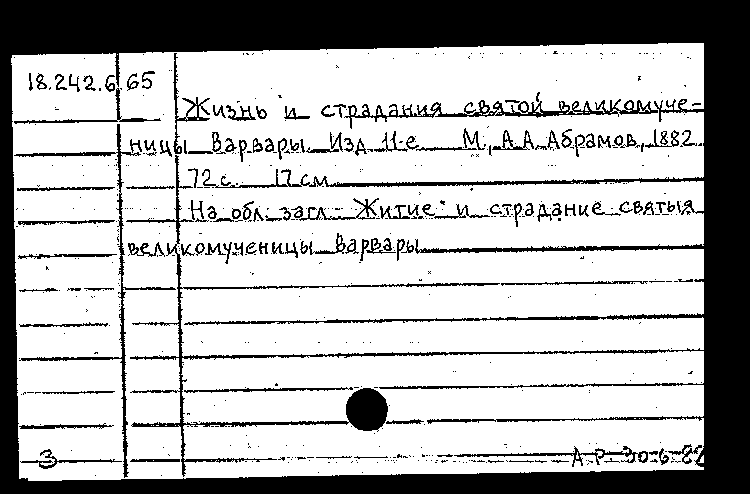 18.242.6.65
Жизнь и страдания святой великомуче-
ницы Варвары. Изд. 11-е М., А.А. Абрамов, 1882
72 с. 17 см.
На обл. загл.: Житие и страдание святыя
великомученицы Варвары
3
А.Р. 30-6-82